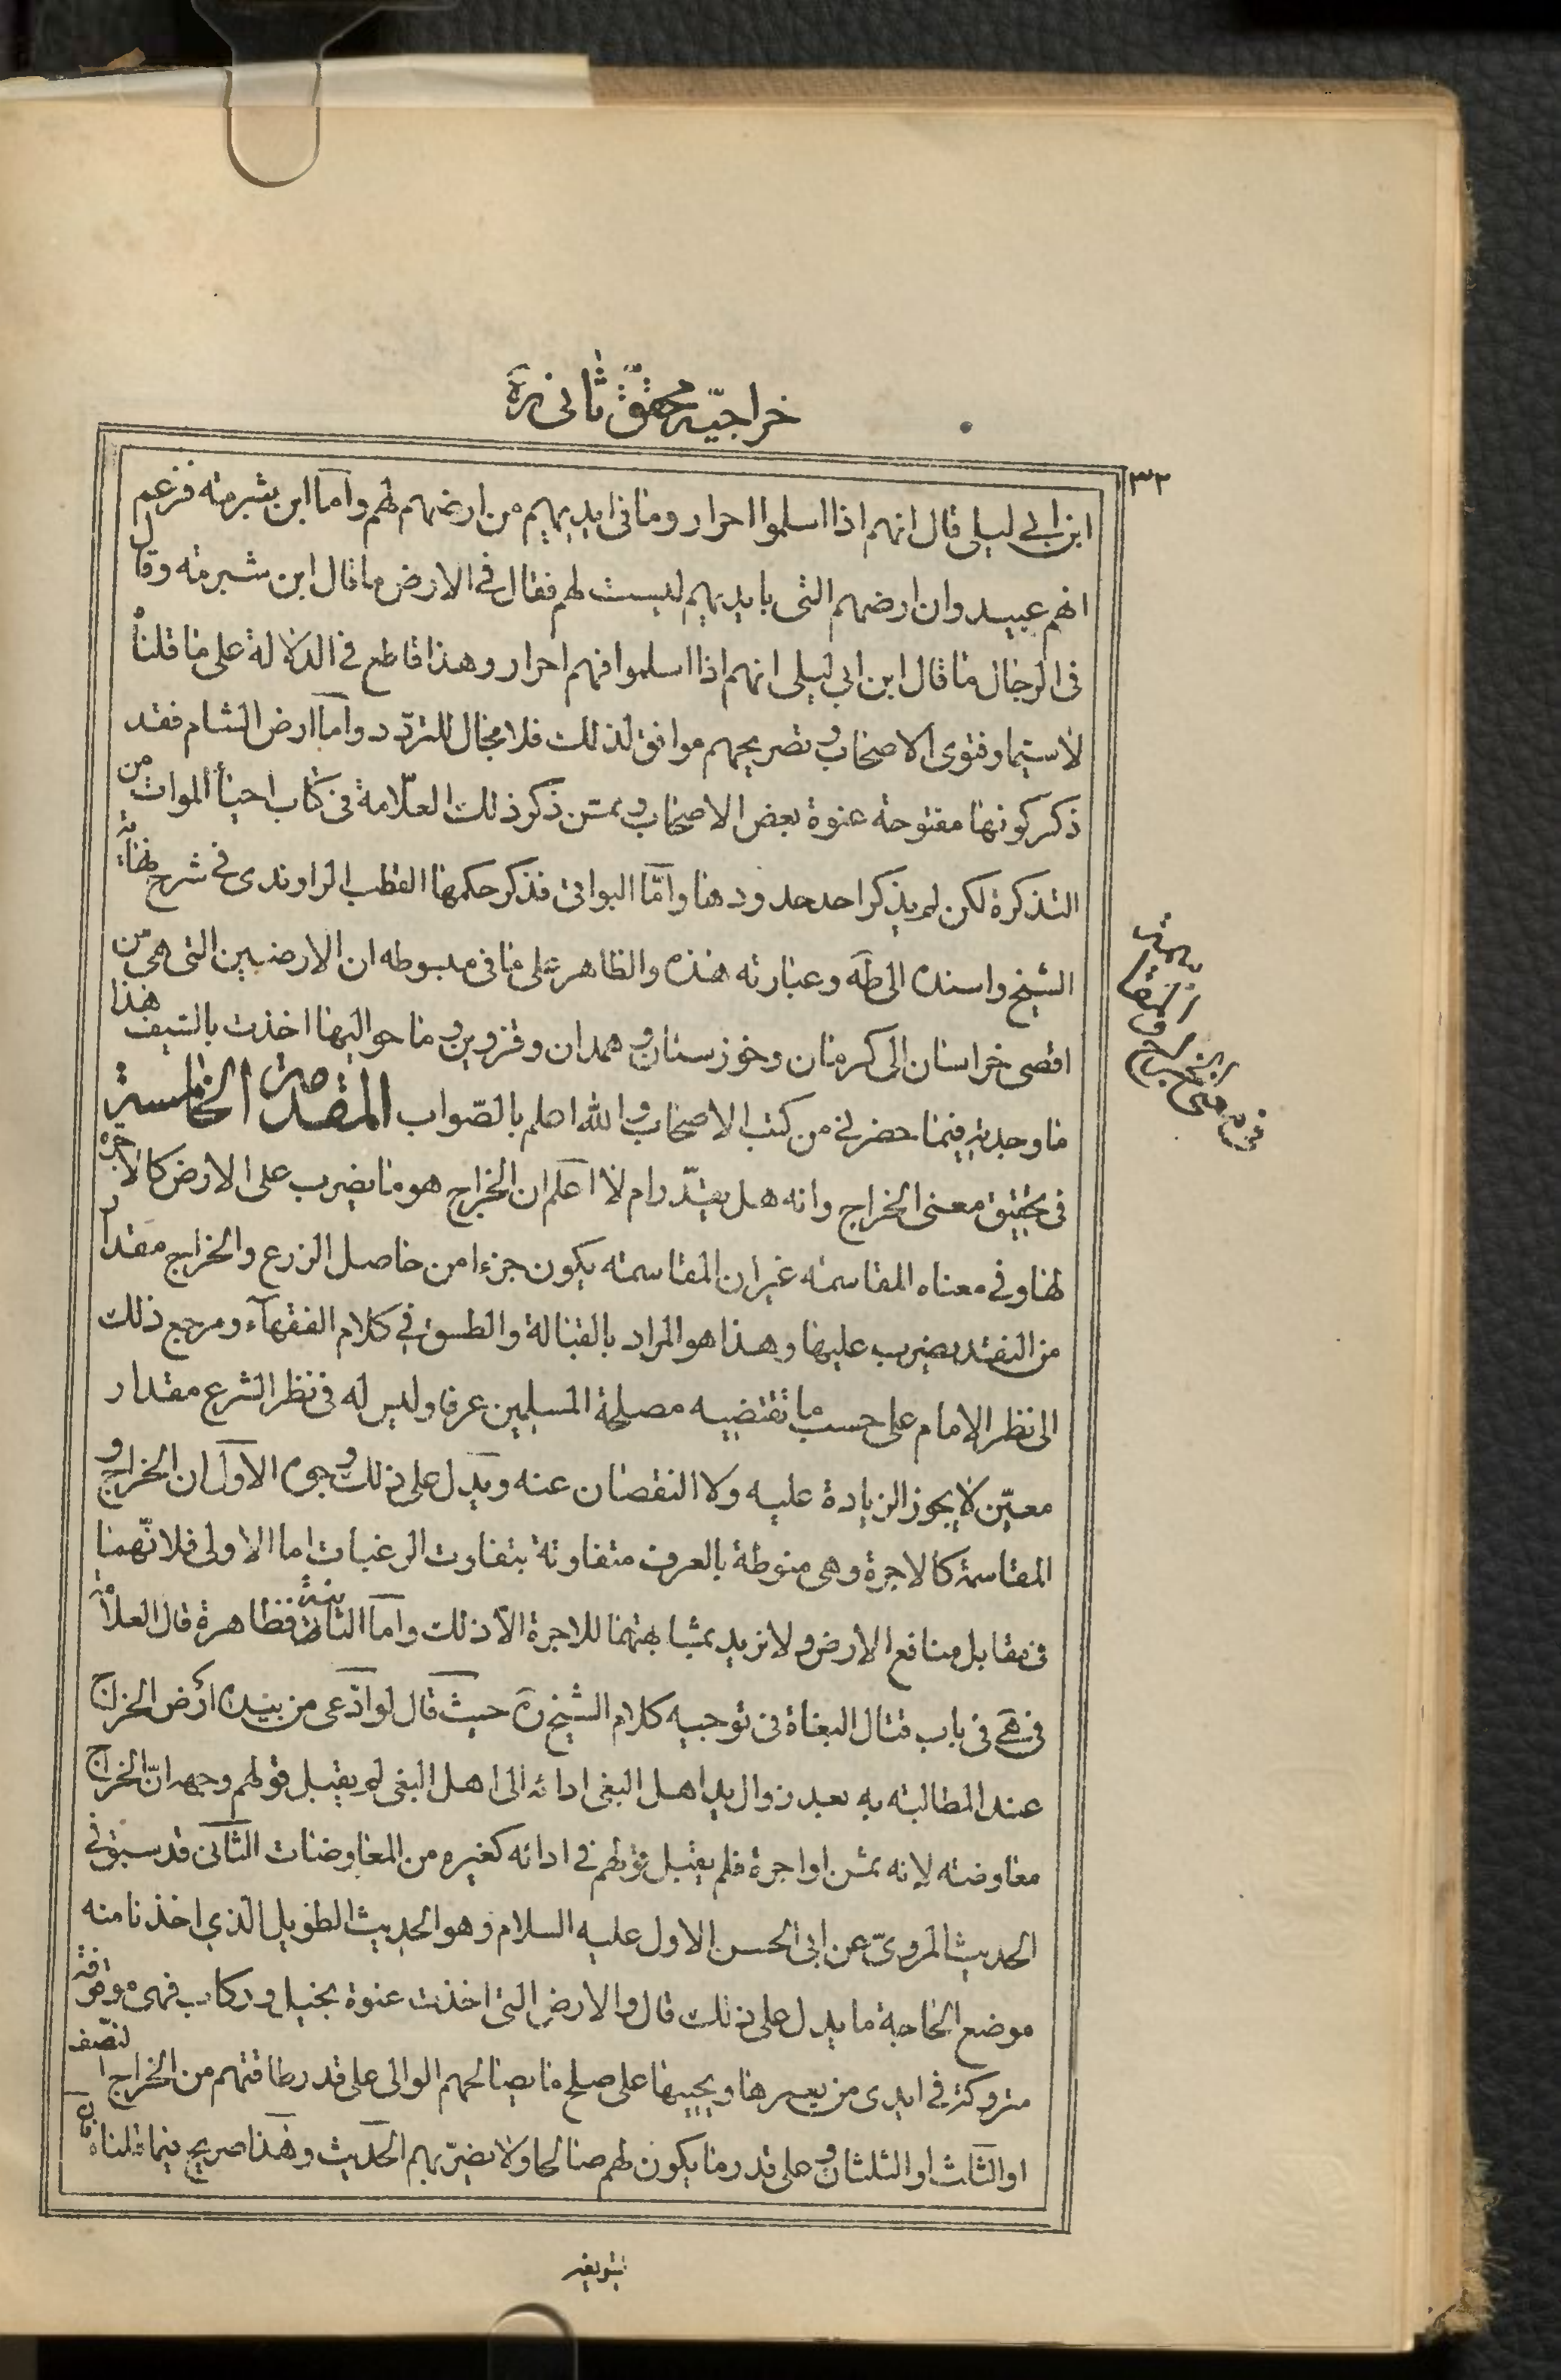 خراجيّه محقق ثانى ره
٣٢
ابن ابي ليلى قال انهم اذا اسلموا احرار وما فى ايديهم من ارضهم لهم واما ابن شبرمه فزعم
انهم عبيد وان ارضهم التى بايديهم ليست لهم فقال في الارض ما قال ابن شبرمه وقال
فى الرجال ما قال ابن ابي ليلى انهم اذا اسلموا فهم احرار وهذا قاطع في الدلالة على ما قلناه
لا سيّما وفتوى الاصحاب وتصريحهم موافق لذلك فلا مجال للتردّد واما ارض الشام فقد
ذكر كونها مفتوحة عنوة بعض الاصحاب وممّن ذكر ذلك العلّامة فى كتاب احياء الموات من
التذكرة لكن لم يذكر احد حدودها وامّا البواقى فذكر حكمها القطب الراوندى في شرح نهاية
الشيخ واسنده الى ط وعبارته هذه والظاهر على ما فى مبسوطه ان الارضين التى هى من
اقصى خراسان الى كرمان وخوزستان وهمدان وقزوين وما حواليها اخذت بالسّيف هذا
ما وجدته فيما حضرني من كتب الاصحاب والله اعلم بالصّواب المقدمة الخامسة
فى تحقيق معنى الخراج وانه هل يقدّر ام لا اعلم ان الخراج هو ما يضرب على الارض كالاجرة
لها وفي معناه المقاسمه غير ان المقاسمه يكون جزءا من حاصل الزرع والخراج مقدار
من النقد يضرب عليها وهذا هو المراد بالقبالة والطسق في كلام الفقهآء ومرجع ذلك
الى نظر الامام على حسب ما تقتضيه مصلحة المسلمين عرفا وليس له فى نظر الشرع مقدار
معيّن لا يجوز الزيادة عليه ولا النقصان عنه ويدل على ذلك وجوه الاول ان الخراج و
المقاسمة كالاجرة وهى منوطة بالعرف متفاوتة بتفاوت الرغبات اما الاولى فلانّهما
فى مقابل منافع الارض ولا نريد بمشابهتهما للاجرة الّا ذلك واما الثانية فظاهرة قال العلامة
فى هى فى باب قتال البغاة فى توجيه كلام الشيخ ره حيث قال لو ادّعى من بيده ارض الخراج
عند المطالبته به بعد زوال يد اهل البغى ادائه الى اهل البغى لم يقبل قولهم وجهه انّ الخراج
معاوضته لانه ثمن او اجرة فلم يقبل قولهم في ادائه كغيره من المعاوضات الثانى قد سبق في
الحديث المروىّ عن ابى الحسن الاول عليه السلام وهو الحديث الطويل الذي اخذنا منه
موضع الحاجة ما يدل على ذلك قال والارض التى اخذت عنوة بخيل وركاب فهى موقوفة
متروكة في ايدى من يعمرها ويحييها على صلح ما يصالحهم الوالى على قدر طاقتهم من الخراج النصّف
او الثلث او الثلثان وعلى قدر ما يكون لهم صالحا ولا يضرّ بهم الحديث وهذا صريح فيما قلناه فان
فى معنى الخراج
والمقا
سمة